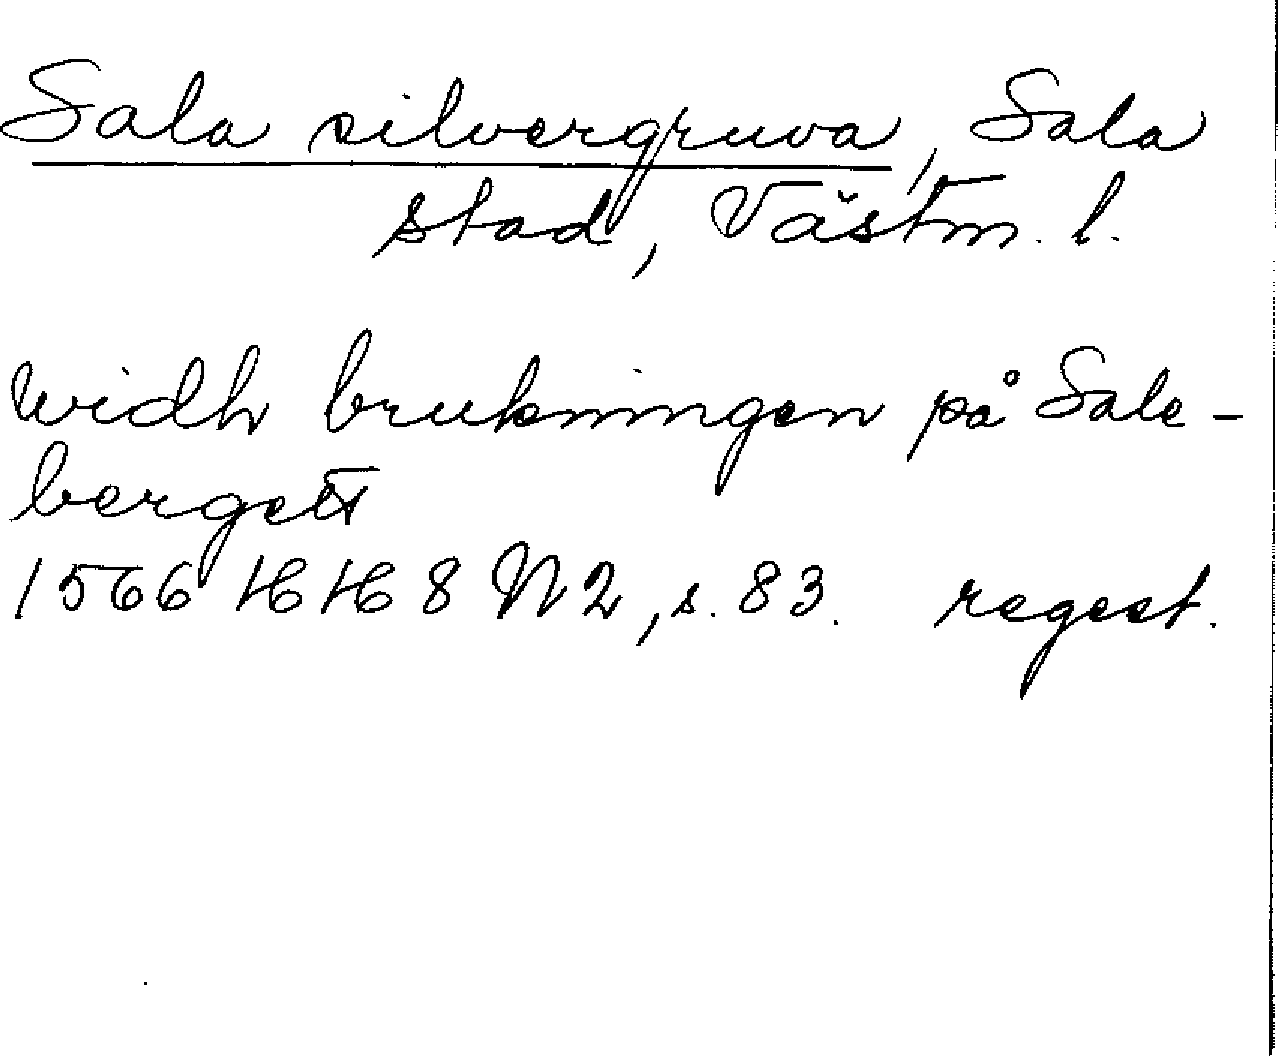 Sala silvergruva, Sala
stad, Västm. l.
widh brukningen på Sale-
bergett
1566 HH 8 N 2, s. 83. regest.